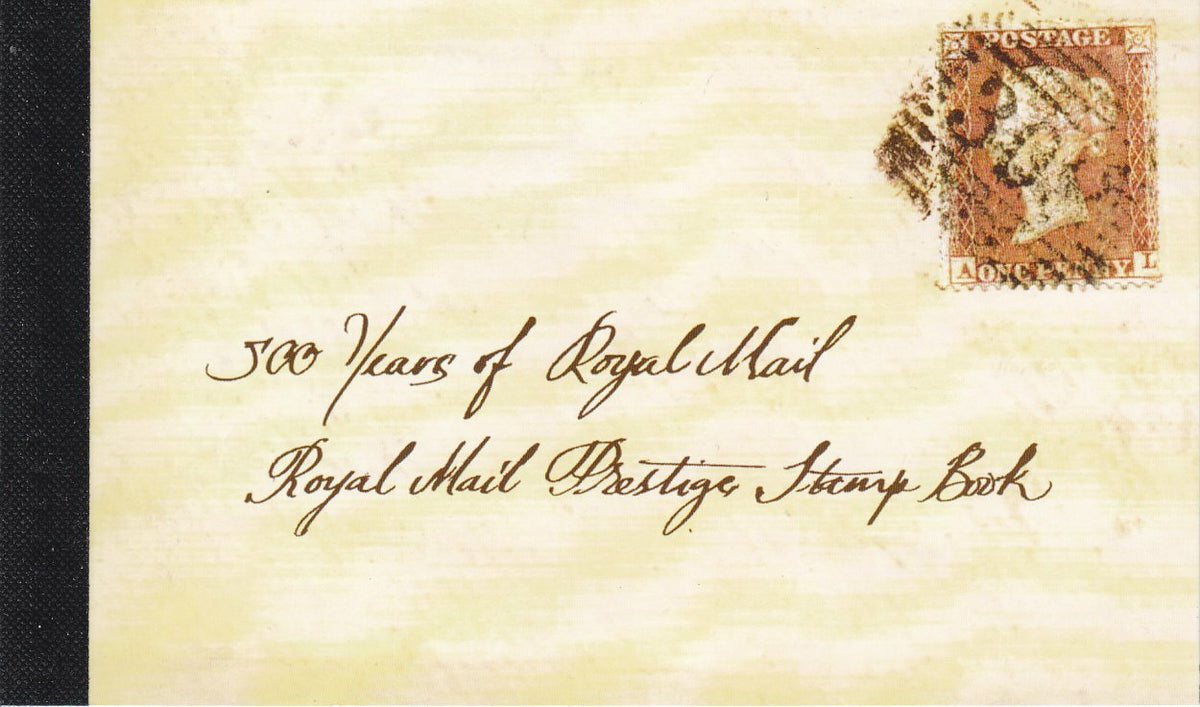 POSTAGE
A ONE PENNY L
500 Years of Royal Mail
Royal Mail Prestige Stamp Book